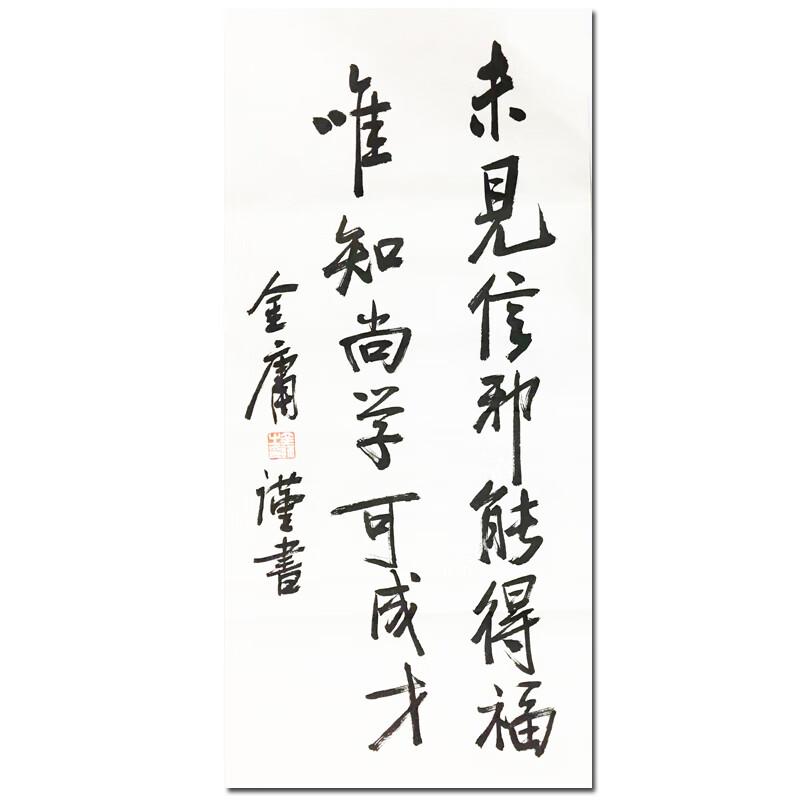 未見信邪能得福
唯知尚学可成才
金庸
謹書